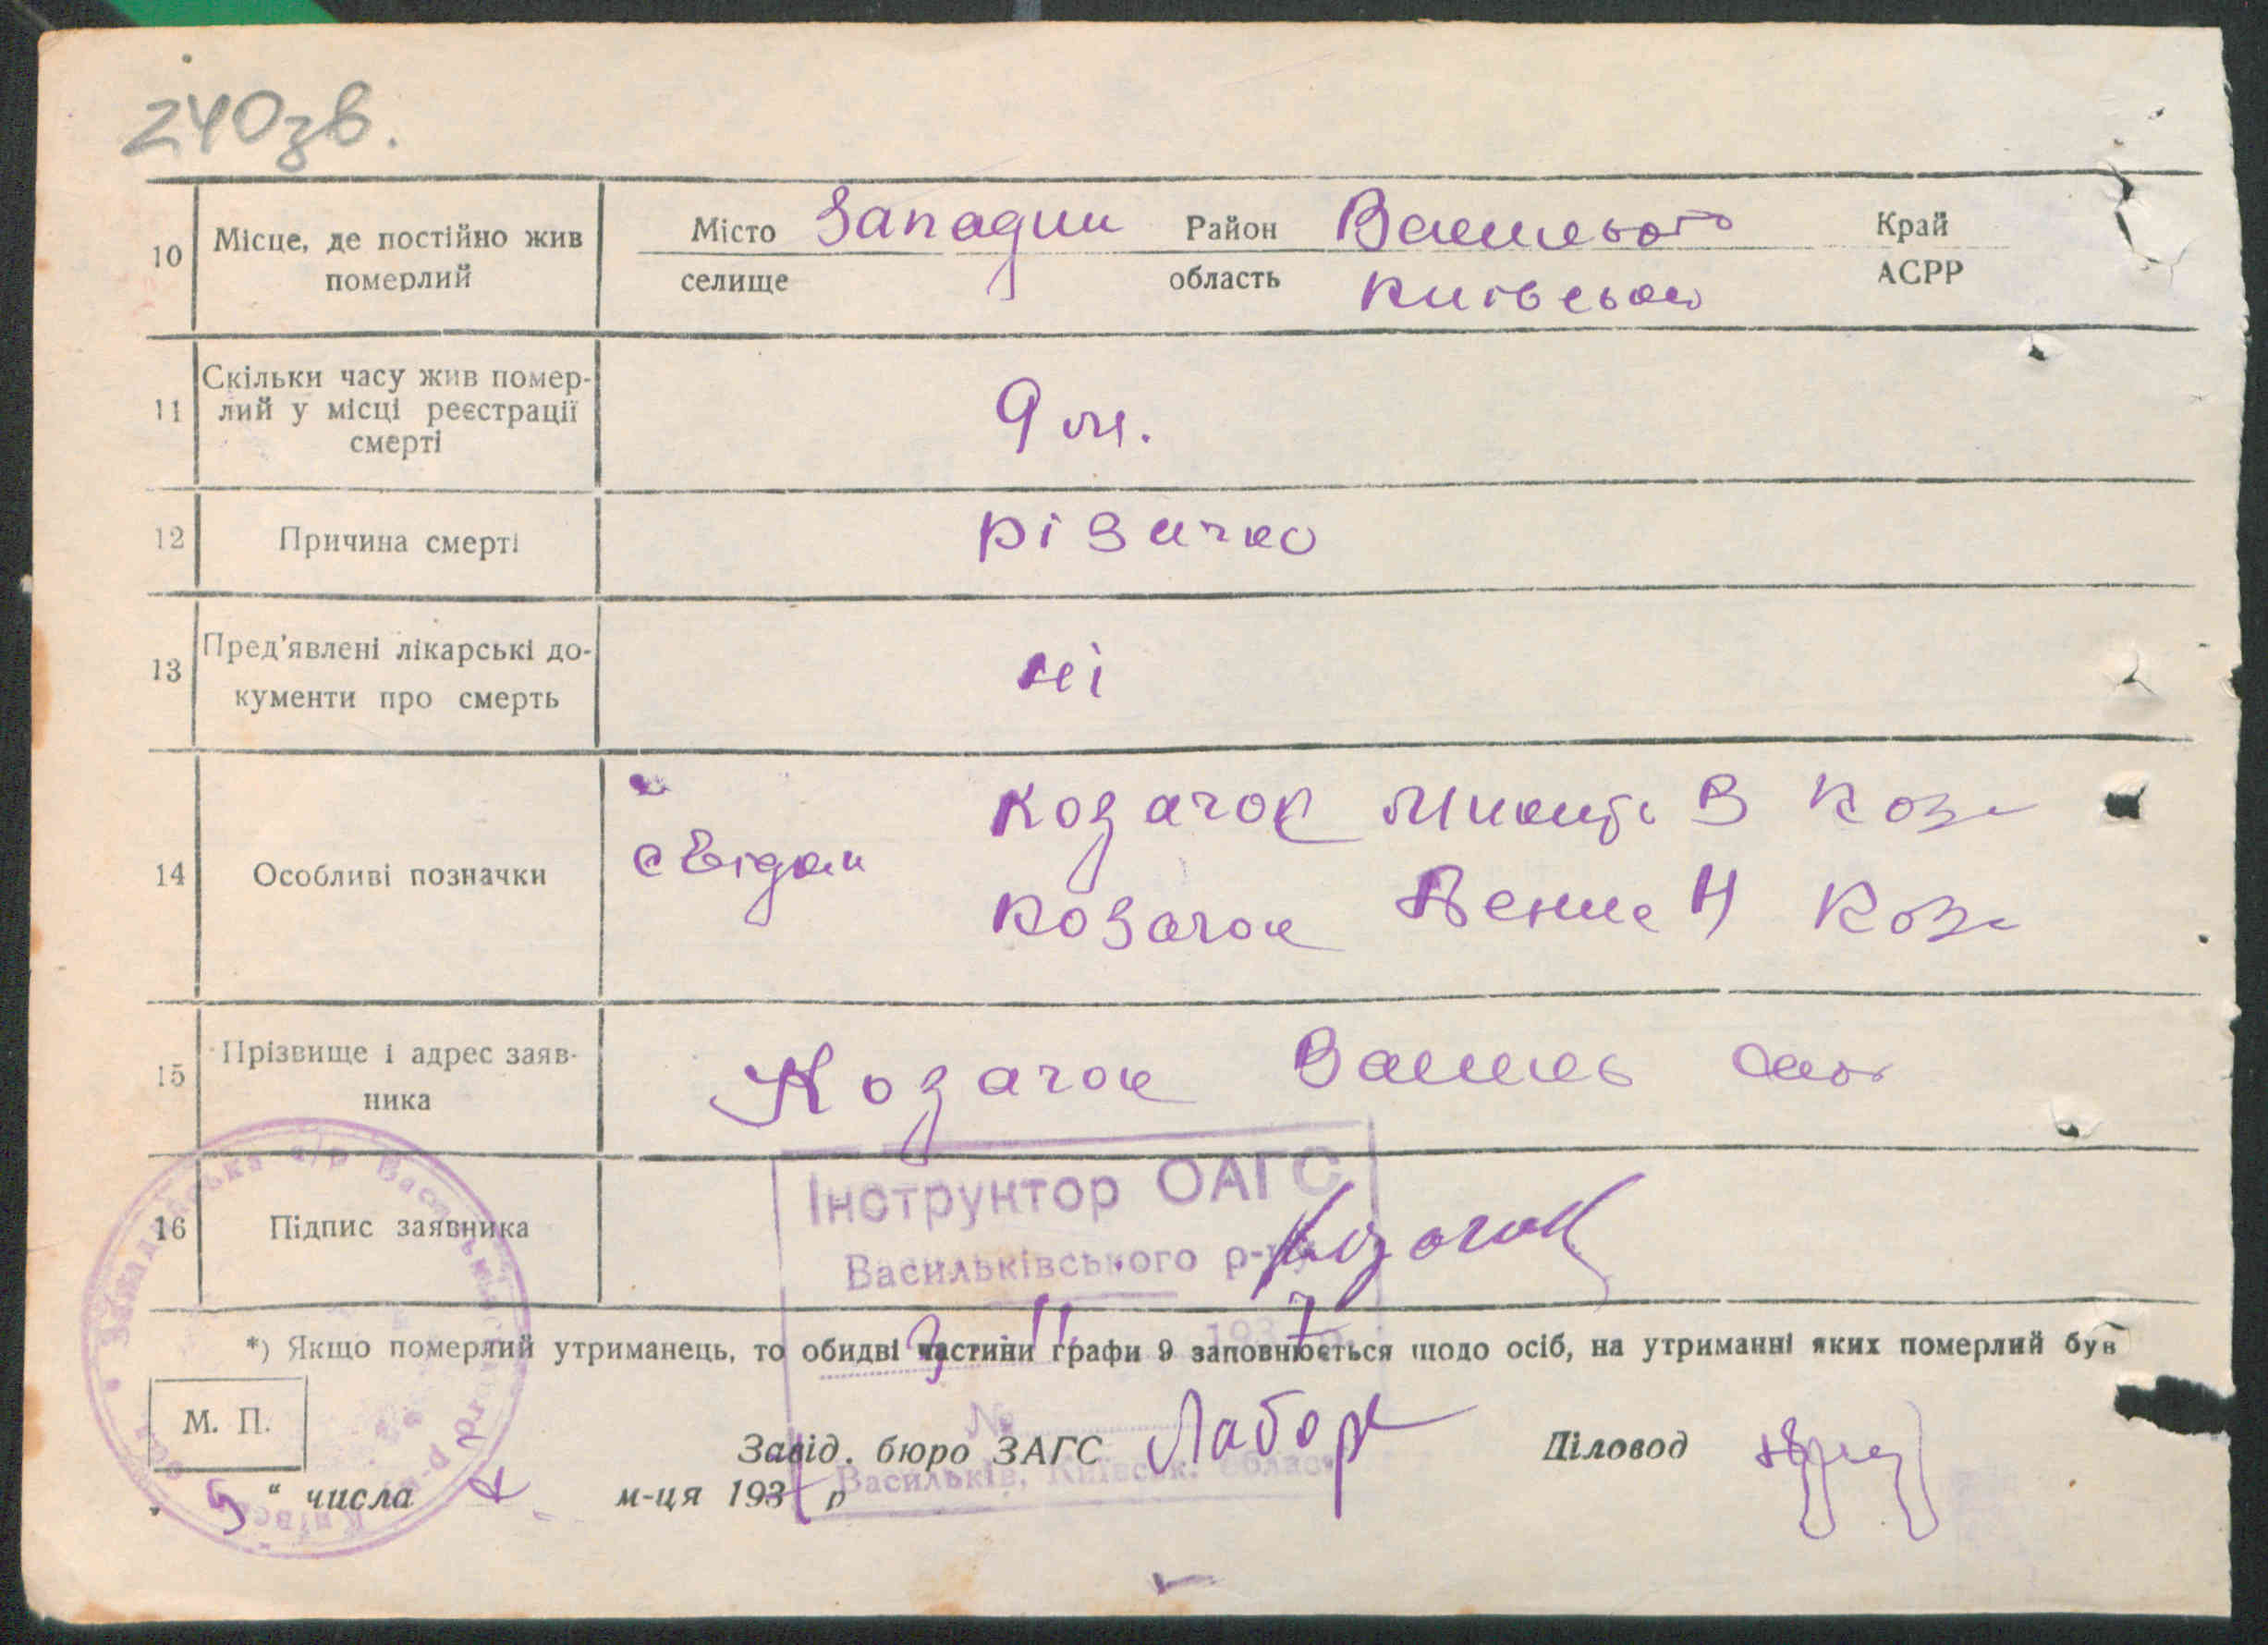 240зв.
10 Місце, де постійно жив померлий
Місто Западни Район Васильк Край
селище область Київської АСРР
11 Скільки часу жив помер-
лий у місці реєстрації
смерті
9 м.
12 Причина смерті різачка
13 Пред'явлені лікарські до-
кументи про смерть
ні
14 Особливі позначки
свідки
Козачок Микита В Коза
Козачок Н Коза
15 Прізвище і адрес заяв-
ника
Козачок Василь
16 Підпис заявника Козачок
Інструктор ОАГС
Васильківського р-ну
*) Якщо померлий утриманець, то обидві частини графи 9 заповнюється щодо осіб, на утриманні яких померлий був
М. П.
№
Завід. бюро ЗАГС Діловод
„5“ числа м-ця 193 р
Васильків, Київськ. області